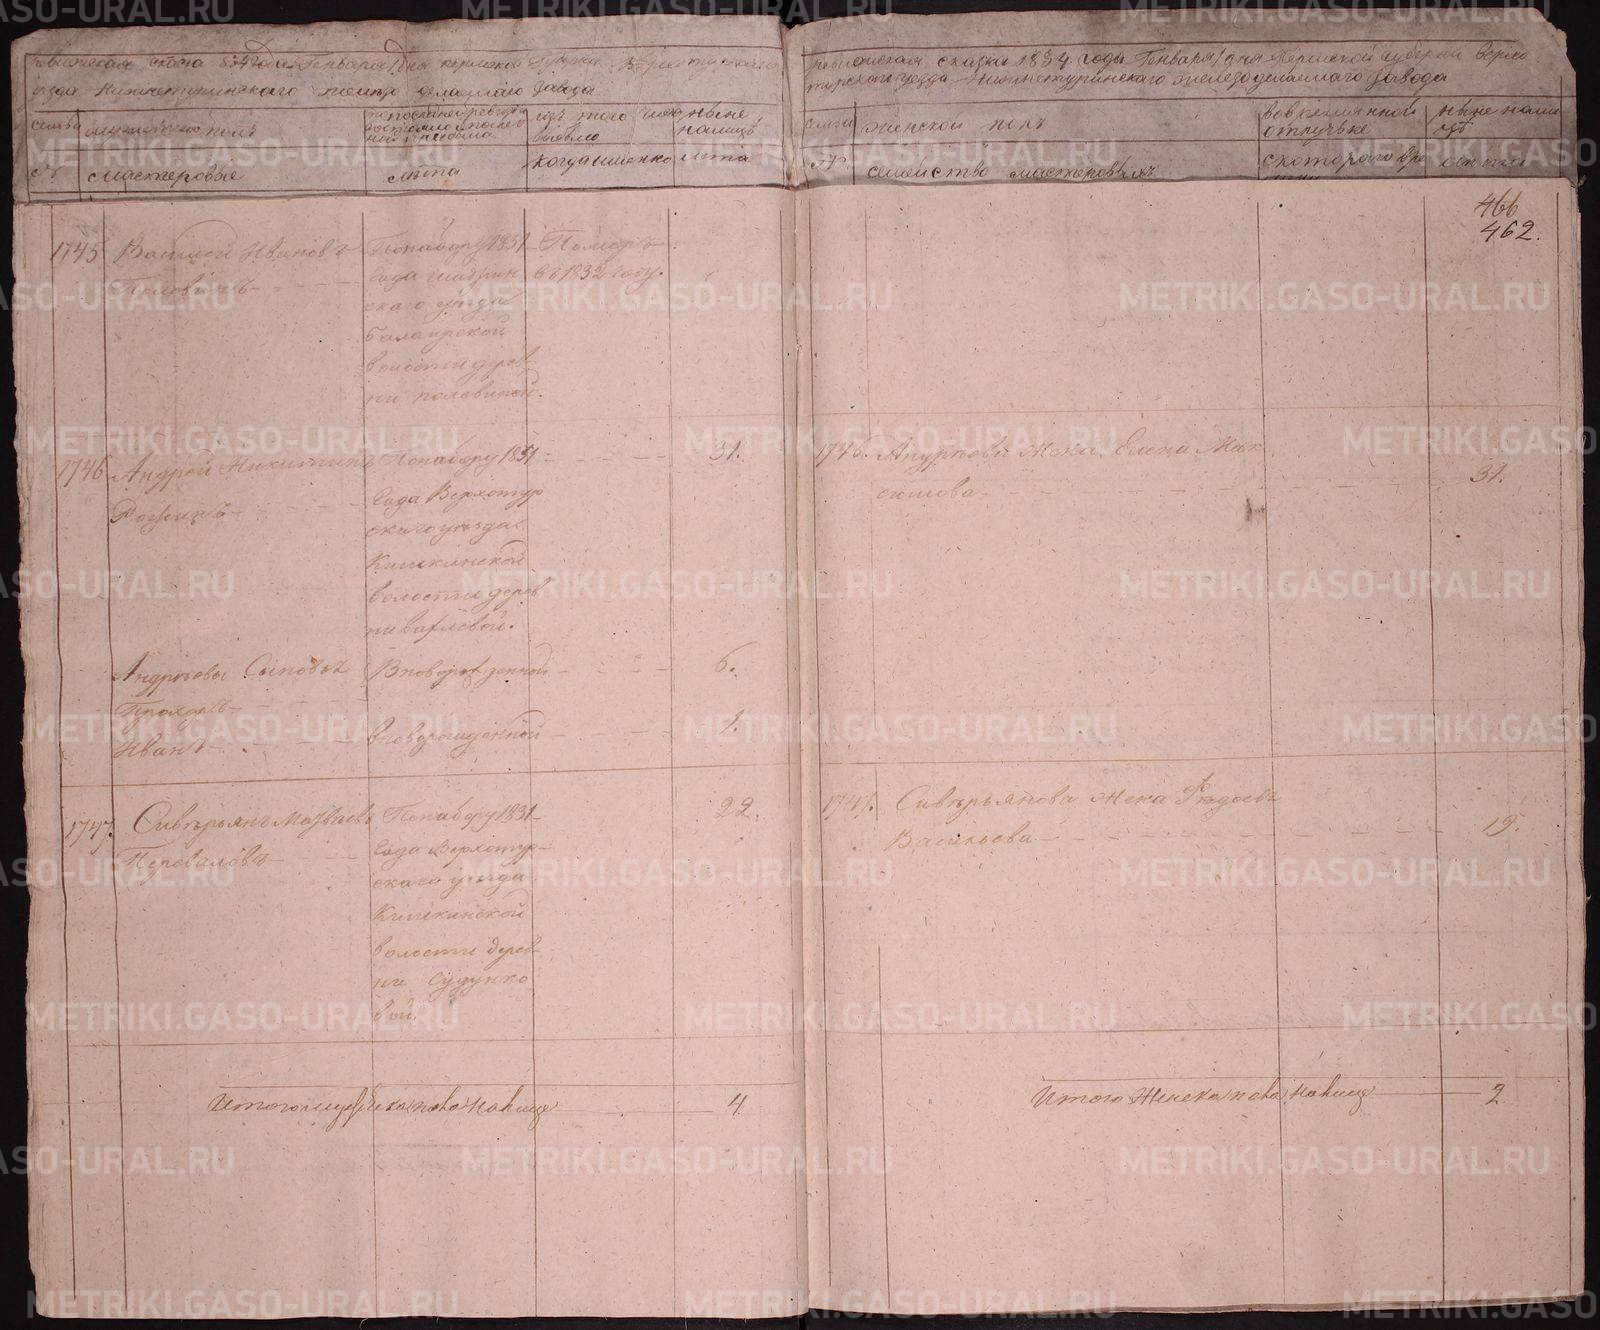 Ревижская скаска 834 года Генваря 1 дня пермской Губернии Верхотурскаго
уезда Нижнетуринскаго железо делаемаго завода
семьи
мужеской полъ
мастеровые
по последней ревизии состояло и после ной прибыло
лета
изъ того числа выбыло
когда именно
ныне налицо
лета
1745 Василей Ивановъ
Половинъ
По набору 1831
года
скаго уезда
Балаирской
волости дерев
ни половиной.
Померъ
въ 1832 году.
1746 Андрей Никитинъ
По набору 1831
года Верхотур
скаго уезда
Кишкинской
волости дерев
ни
31.
Андреевы Сыновья
Прохоръ
Вноворожденной
6.
Иванъ
вноворожденной
1.
1747. Сивѣрьянъ Матвѣевъ
Переваловъ
По набору 1831
года Верхотур
скаго уезда
Кишкинской
волости дерев
ни Судунко
вой.
22.
Итого мужеска пола налице 4
ревизская сказка 1834. года Генваря 1 дня Пермской губернии Верхо
турскаго уезда Нижнетуринскаго железоделаемаго завода
семьи
женской полъ
семейство мастеровыхъ
во временной отлучке
с котораго вре
мени
ныне нали
це
лета
466
462.
1746. Андреева жена Елена Мак
симова
31.
1747. Сивѣрьянова жена Федосья
Васильева
19.
Итого Женска пола налице 2
METRIKI.GASO-URAL.RU